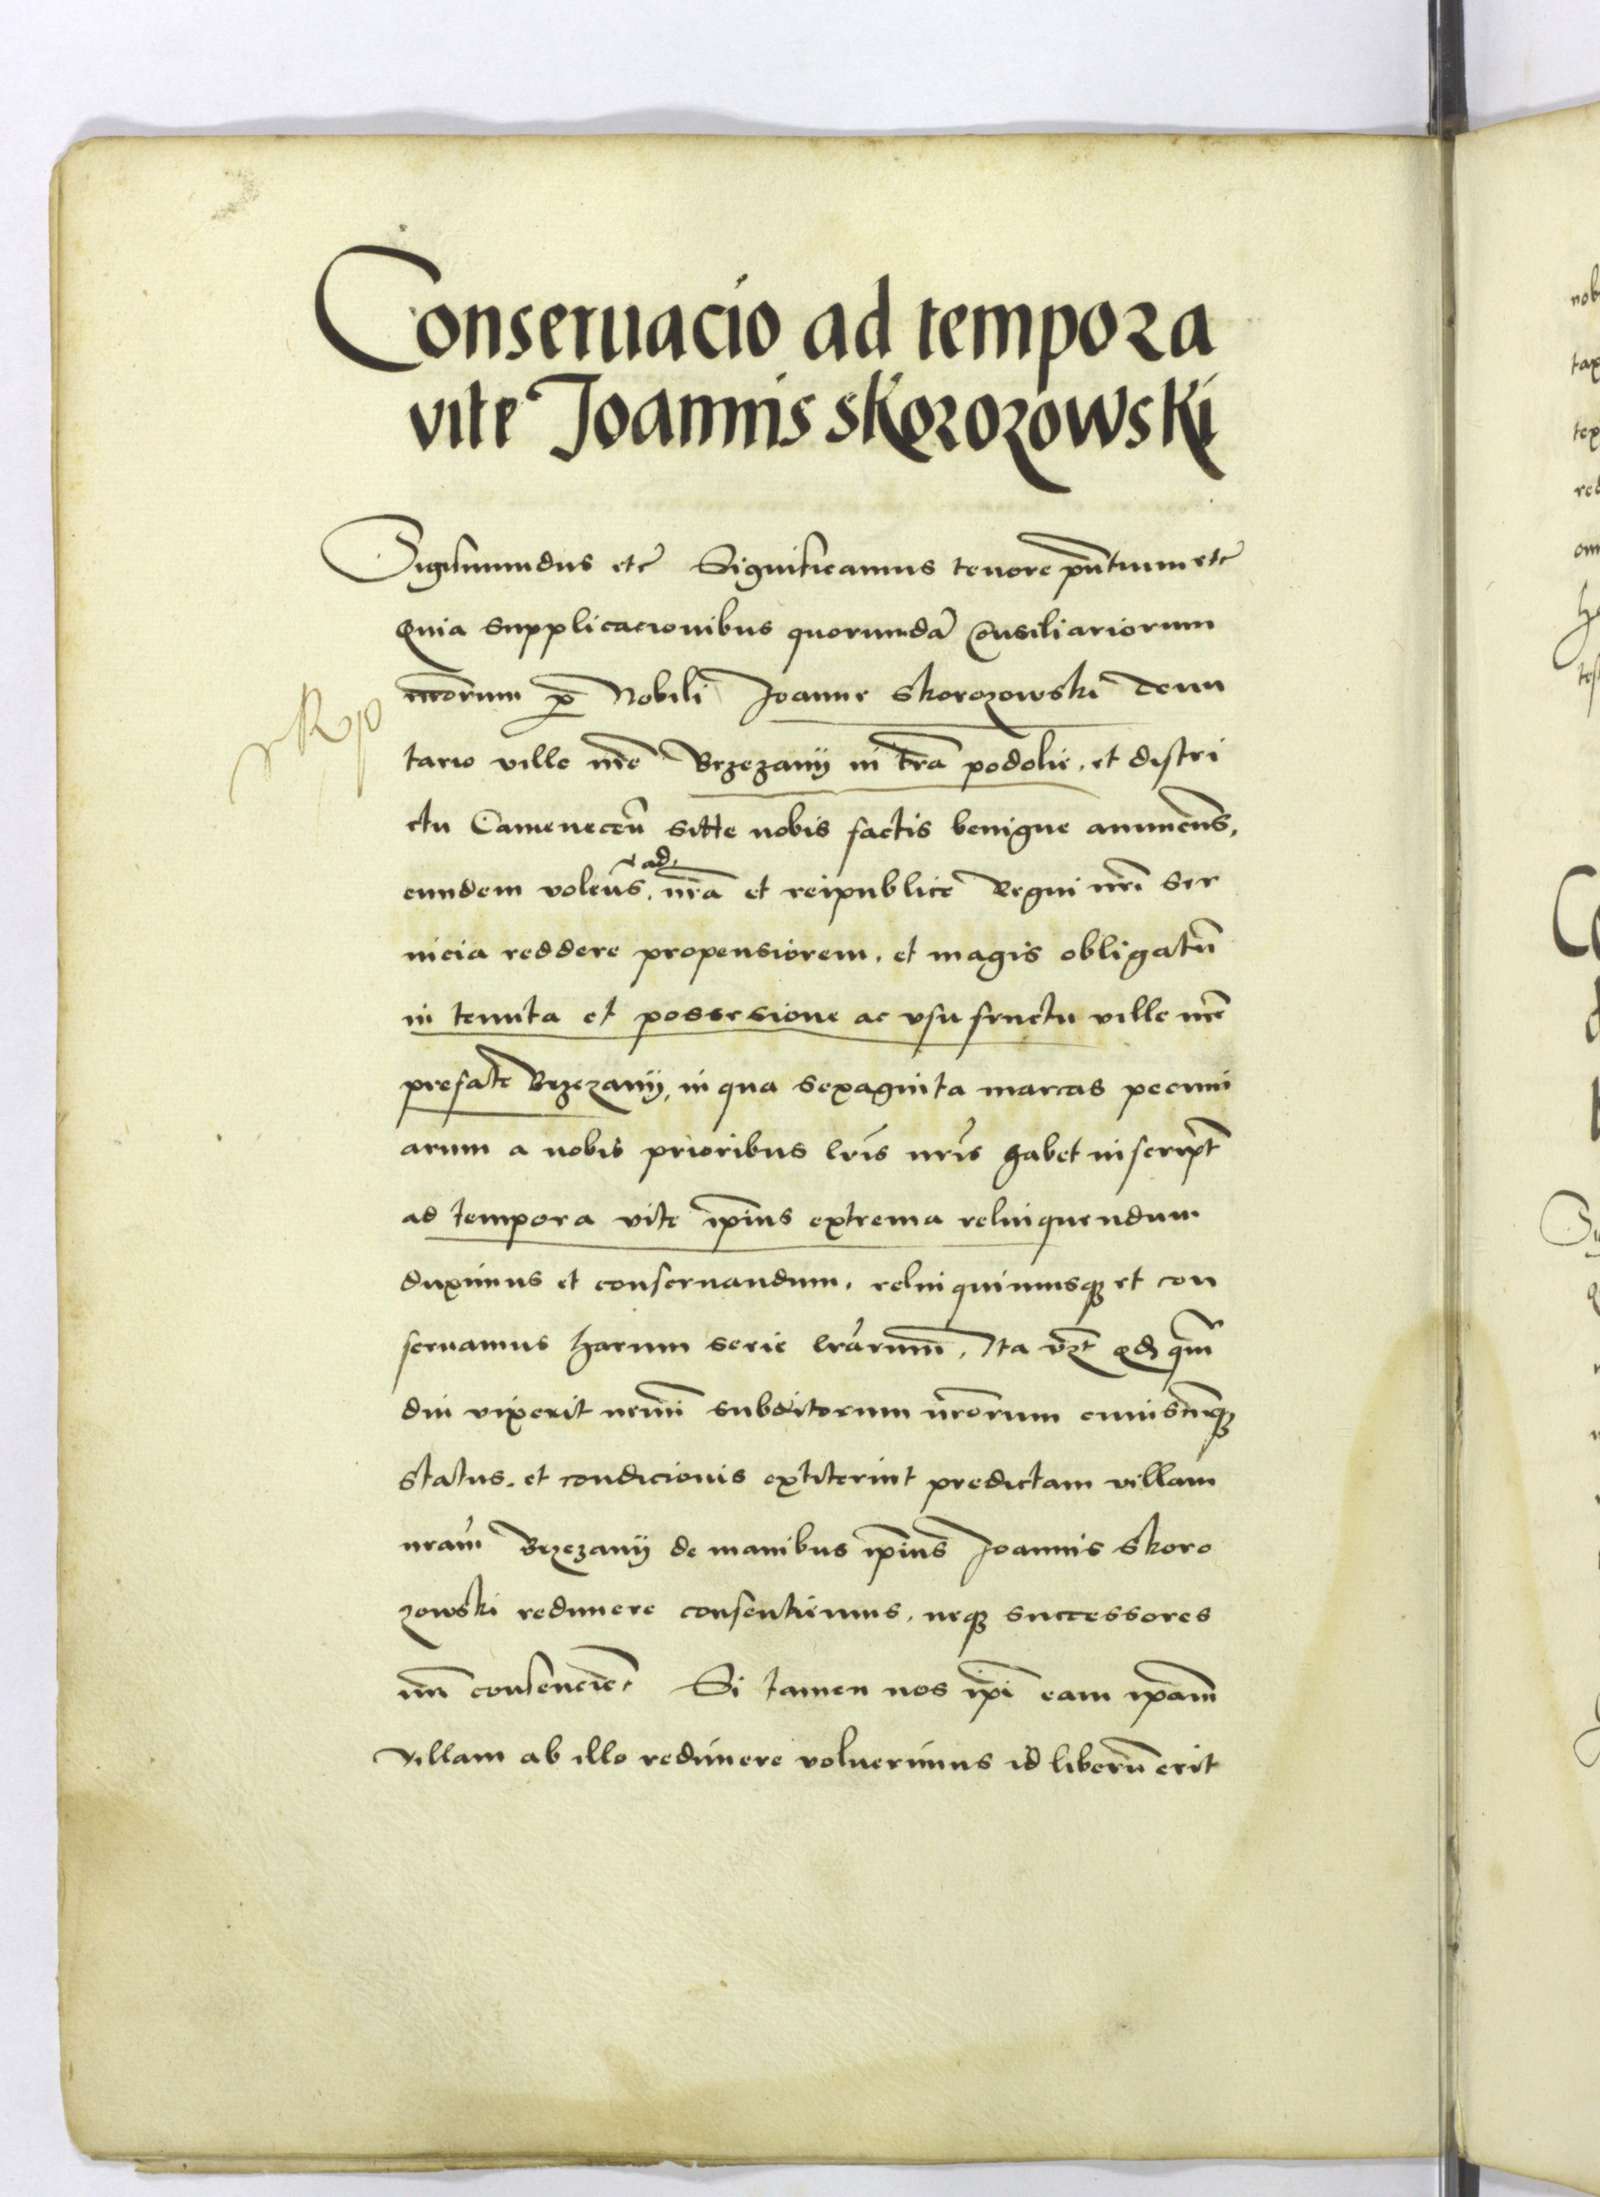 Conseruacio ad tempora
vite Joannis skorozowski
Sigismundus etc Significamus tenore pñtium etc
Quia supplicacionibus quorumdã Consiliariorum
nrorum p Nobili Joanne Skorozowski Tenu
tario ville nre Brzezany in tra podolie, et distri
ctu Camenecen̄ sitte nobis factis benigne annuen̄s,
ad
eundem volen̄s, nr̃a et reipublice Regni nr̃i ser
uicia reddere propensiorem, et magis obligatũ
in tenuta et possessione ac vsufructu ville nr̃e
prefate Brzezany, in qua sexaginta marcas pecuni
arum a nobis prioribus lr̃is nr̃is habet inscript
ad tempora vite ip̃ius extrema relinquendum
duximus et conseruandum, relinquimusq et con
seruamus harum serie lr̃arum, Ita vz̃t qd qm̃
diu vixerit nemini subditorum nr̃orum cuiuscunq
status, et condicionis extiterint predictam villam
nr̃am Brzezany de manibus ip̃ius Joannis Skoro
zowski redimere consentiemus, neq successores
nr̃i consencient Si tamen nos ip̃i eam ip̃am
villam ab illo redimere voluerimus id liberũ erit